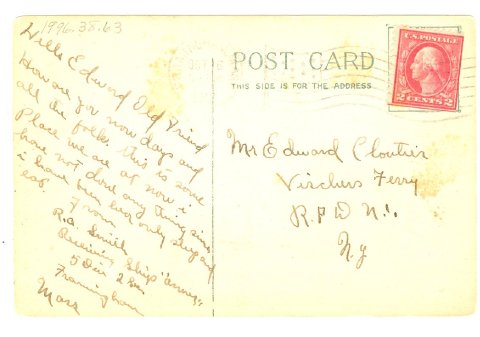 1996.38.63
Wells Edward Old Friend
How are you now days and
all the folks this is some
Place we are at now i
have not done any thing since
i have been hear only sleep and
eat.
From
R.A. Smith
Receiving Ship
5 Div 2
Framingham
Mass
POST CARD
THIS SIDE IS FOR THE ADDRESS
U.S. POSTAGE
2 CENTS 2
Mr Edward Cloutier
Vischers Ferry
R.F.D N.1.
N.Y